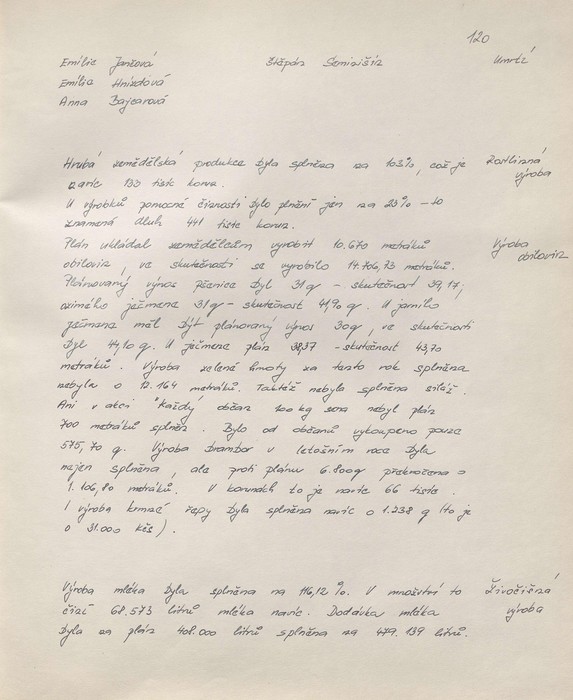 120
Emílie Janšová Štěpán Seminišin Úmrtí
Emílie Hnízdová
Anna Bajcarová
Hrubá zemědělská produkce byla splněna na 103%, což je Rostlinná
navíc 133 tisíc korun. výroba
U výrobků pomocné činnosti bylo plnění jen na 23% - to
znamená dluh 441 tisíc korun.
Plán ukládal zemědělcům vyrobit 10.670 metráků Výroba
obilovin, ve skutečnosti se vyrobilo 14.706,73 metráků. obilovin
Plánovaný výnos pšenice byl 31q - skutečnost 39,17;
ozimého ječmene 31q - skutečnost 41,90 q. U jarního
ječmene měl být plánovaný výnos 30q, ve skutečnosti
byl 44,10 q. U ječmene plán 38,37 - skutečnost 43,70
metráků. Výroba zelené hmoty za tento rok splněna
nebyla o 12.164 metráků. Taktéž nebyla splněna siláž.
Ani v akci "Každý občan 100 kg sena nebyl plán
700 metráků splněn. Bylo od občanů vykoupeno pouze
575,70 q. Výroba brambor v letošním roce byla
nejen splněna, ale proti plánu 6.800q překročena o
1.106,80 metráků. V korunách to je navíc 66 tisíc.
I výroba krmné řepy byla splněna navíc o 1.238 q (to je
o 31.000 Kčs).
Výroba mléka byla splněna na 116,12 %. V množství to Živočišná
činí 68.573 litrů mléka navíc. Dodávka mléka výroba
byla za plán 408.000 litrů splněna na 479.139 litrů.